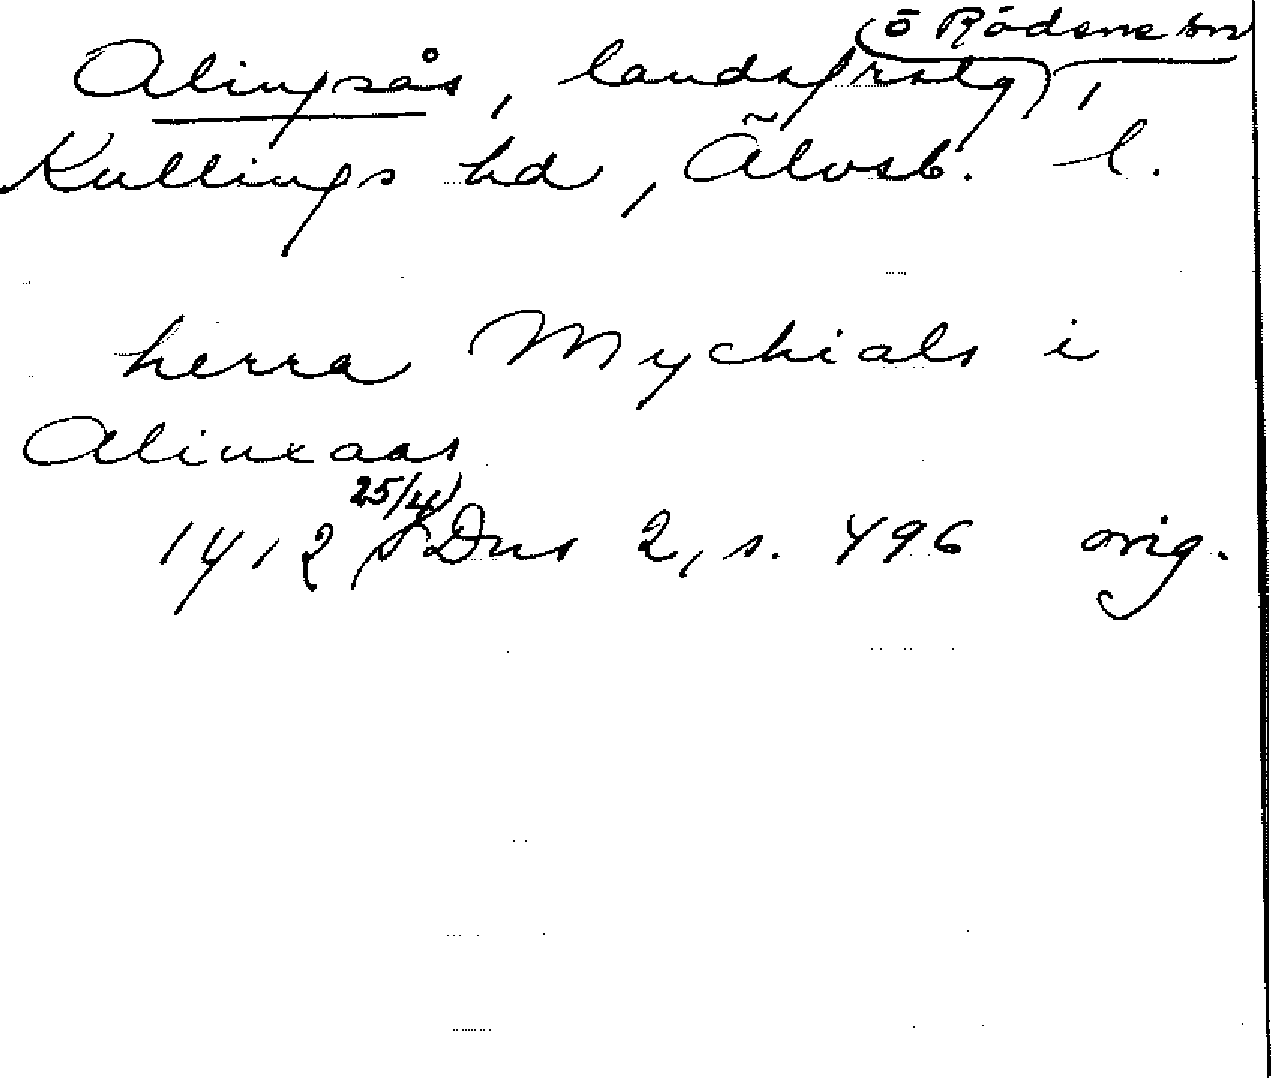 (ö Rödene sn
Alingsås, landsfrslg),
Kullings hd, Älvsb. l.
herra Mychials i
Alinxaas
25/4
1412 Dns 2, s. 496 orig.